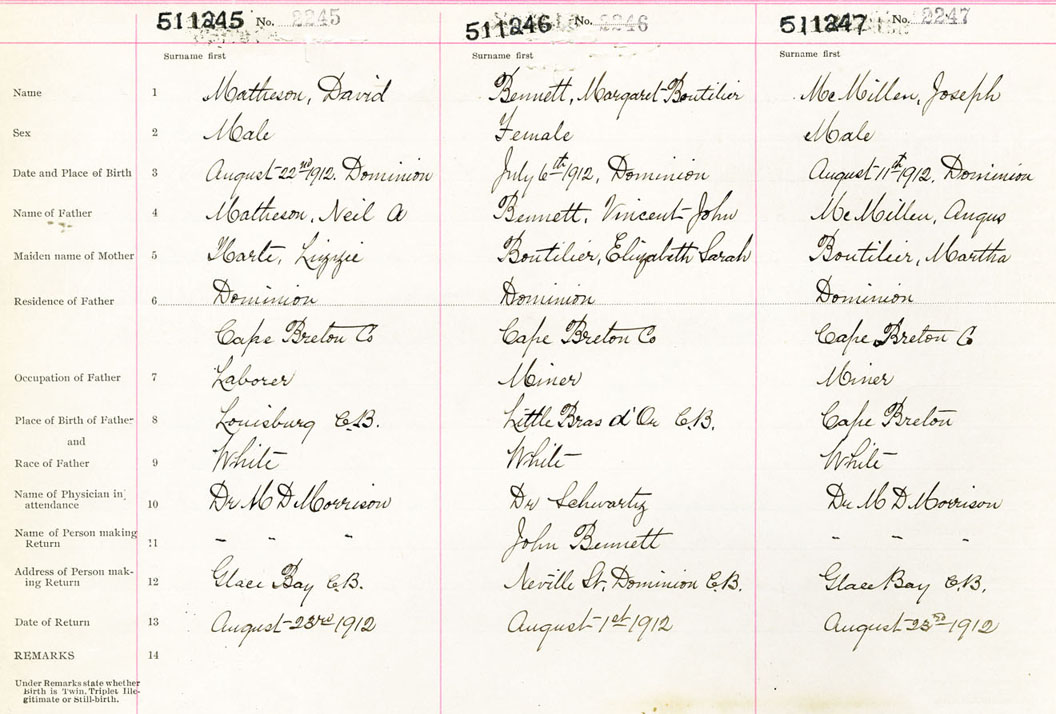 511245 No. 2245 511246 No. 2246 511247 No. 2247
Surname first Surname first Surname first
Name 1 Matheson, David Bennett, Margaret Boutilier McMillen, Joseph
Sex 2 Male Female Male
Date and Place of Birth 3 August 22nd 1912. Dominion July 6th 1912, Dominion August 11th 1912. Dominion
Name of Father 4 Matheson, Neil A Bennett, Vincent John McMillen, Angus
Maiden name of Mother 5 Lizzie Boutilier, Elizabeth Sarah Boutilier, Martha
Residence of Father 6 Dominion Dominion Dominion
Cape Breton Co Cape Breton Co Cape Breton Co
Occupation of Father 7 Laborer Miner Miner
Place of Birth of Father 8 Louisburg C.B. Little Bras d'Or C.B. Cape Breton
and
Race of Father 9 White White White
Name of Physician in attendance 10 Dr M D Morrison Dr Schwartz Dr M D Morrison
Name of Person making Return 11 " " " John Bennett " " "
Address of Person mak-ing Return 12 Glace Bay C.B. Neville St. Dominion C.B. Glace Bay C.B.
Date of Return 13 August 23rd 1912 August 1st 1912 August 23rd 1912
REMARKS 14
Under Remarks state whether
Birth is Twin, Triplet Ille-
gitimate or Still-birth.